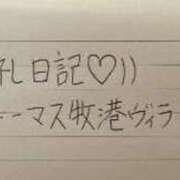 し日記♡))
ーマス牧港ヴィラ